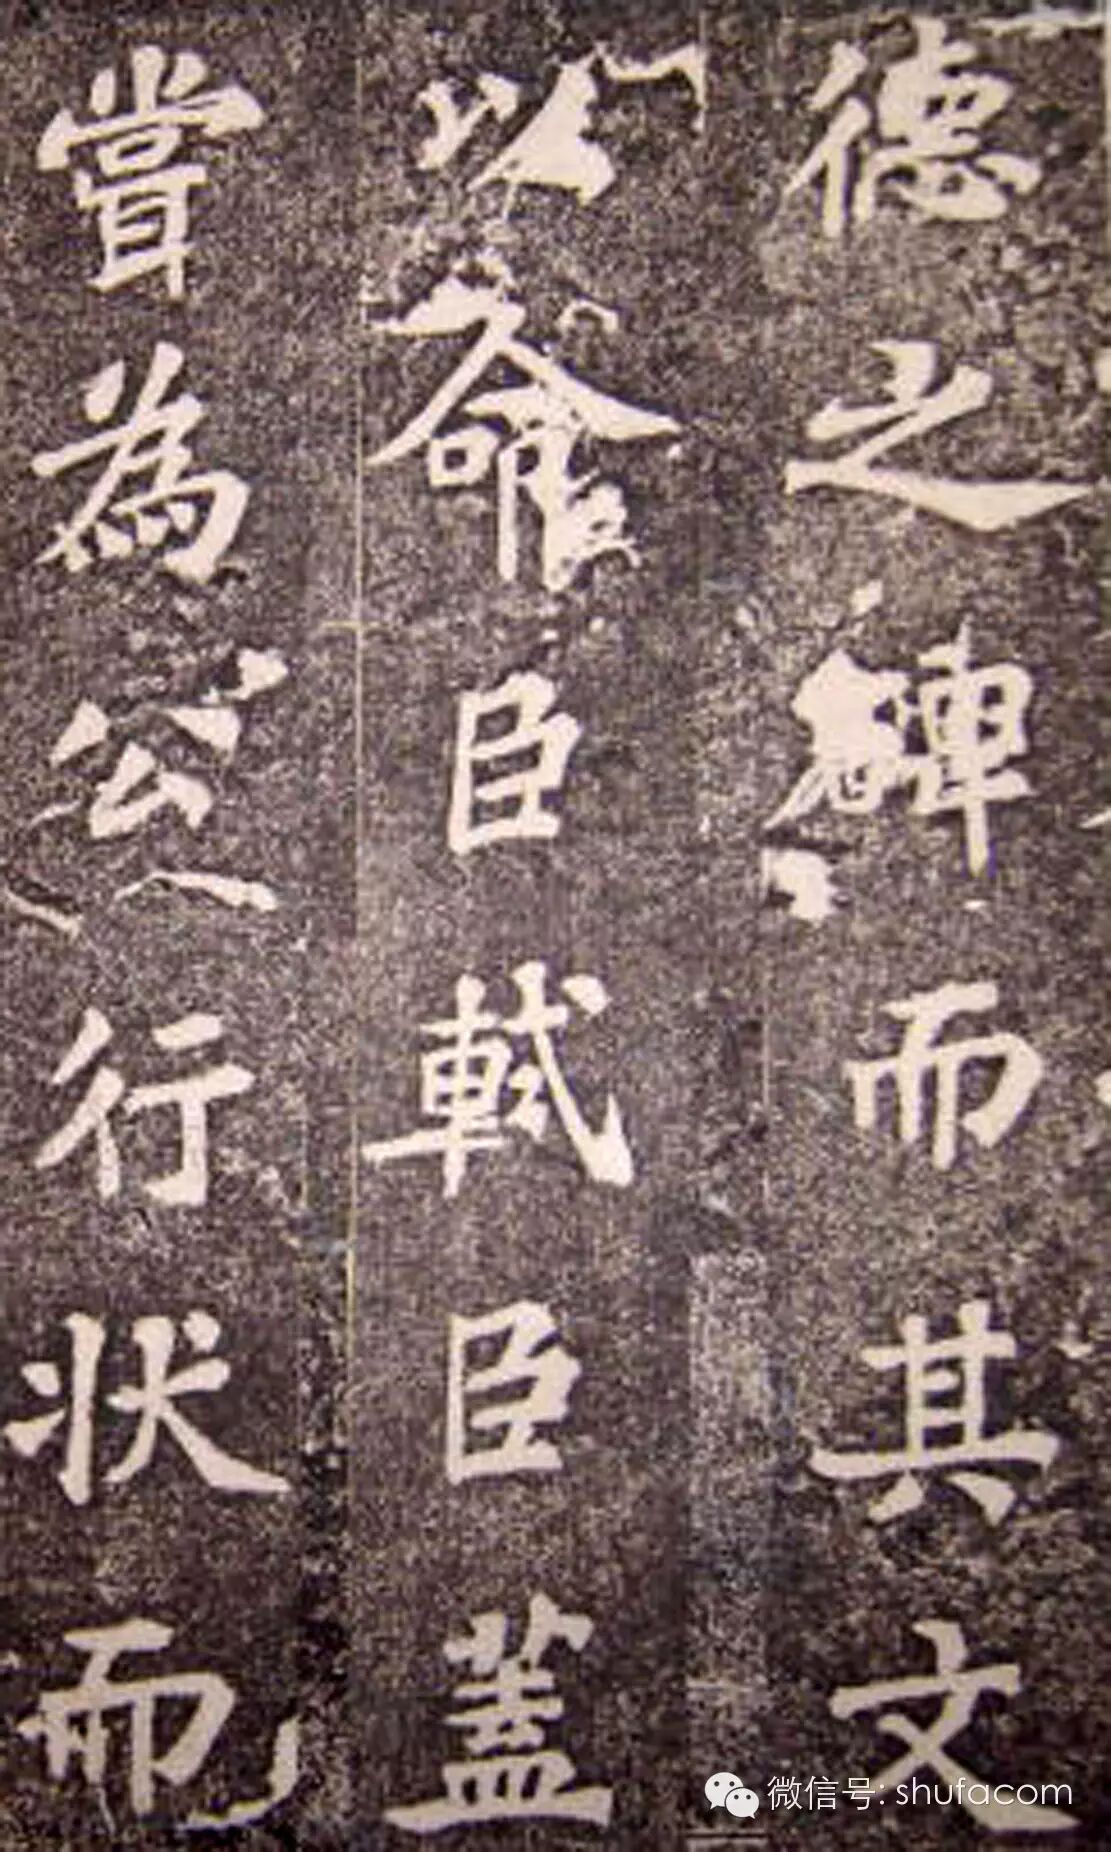 德之碑而其文
以命臣軾臣蓋
甞為公行狀而
微信号: shufacom